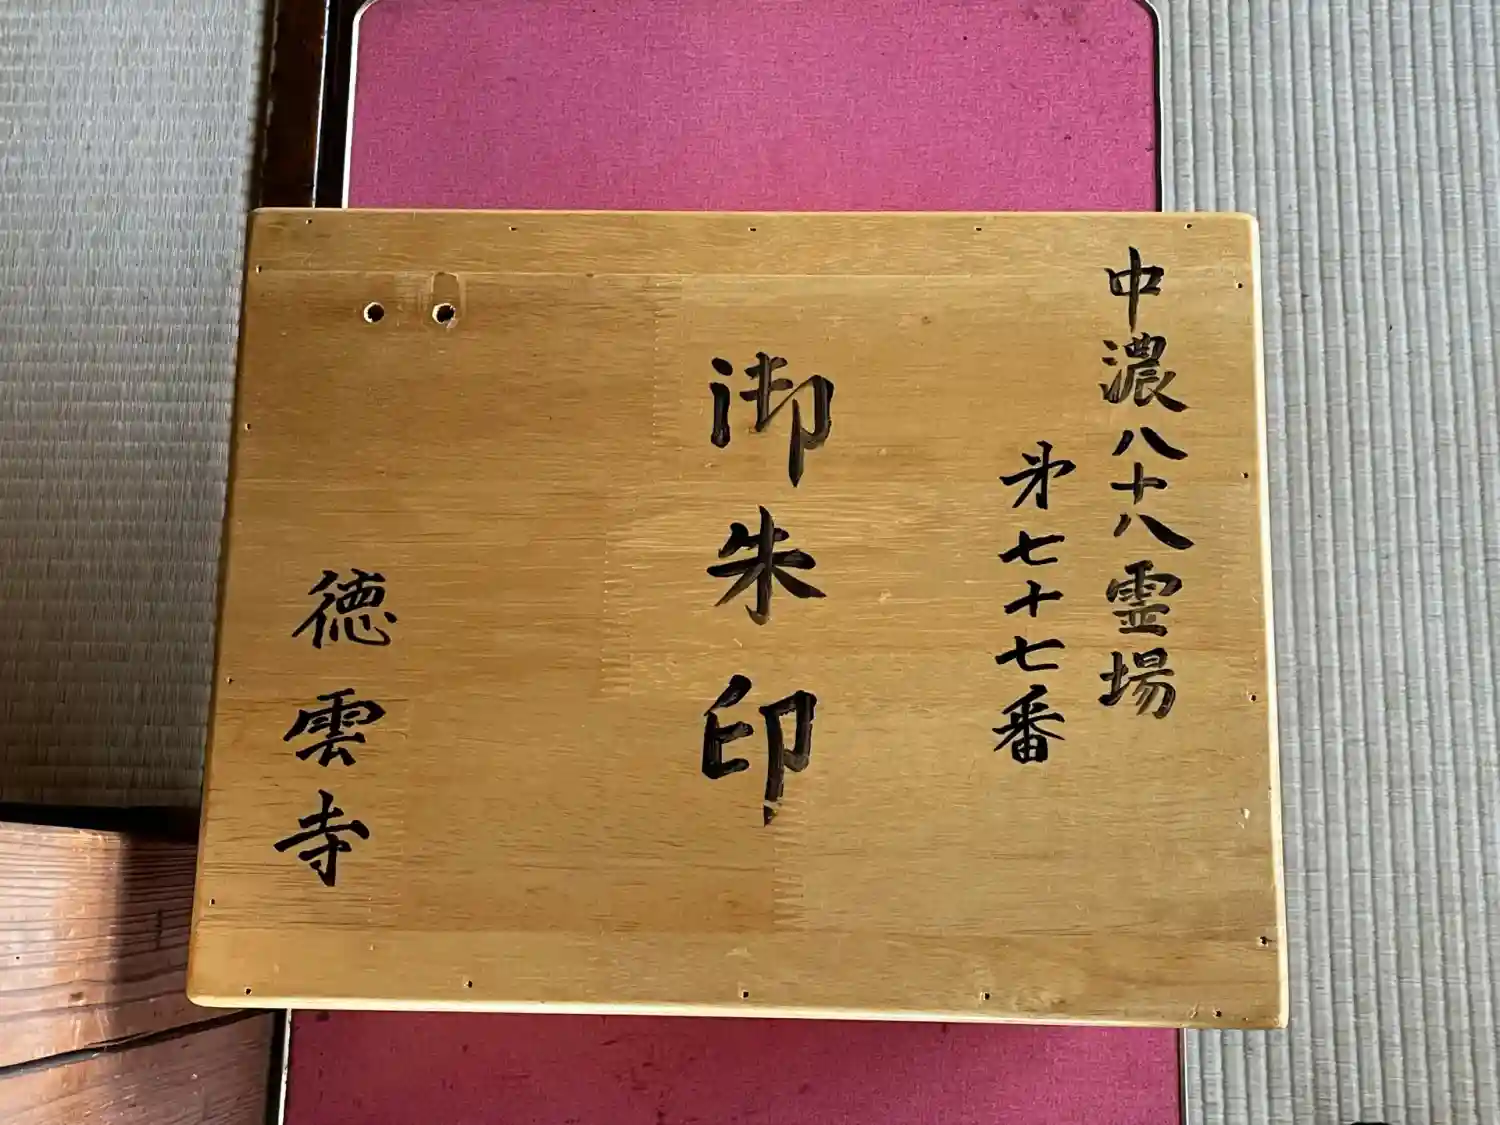 中濃八十八霊場
㐧七十七番
御朱印
徳雲寺